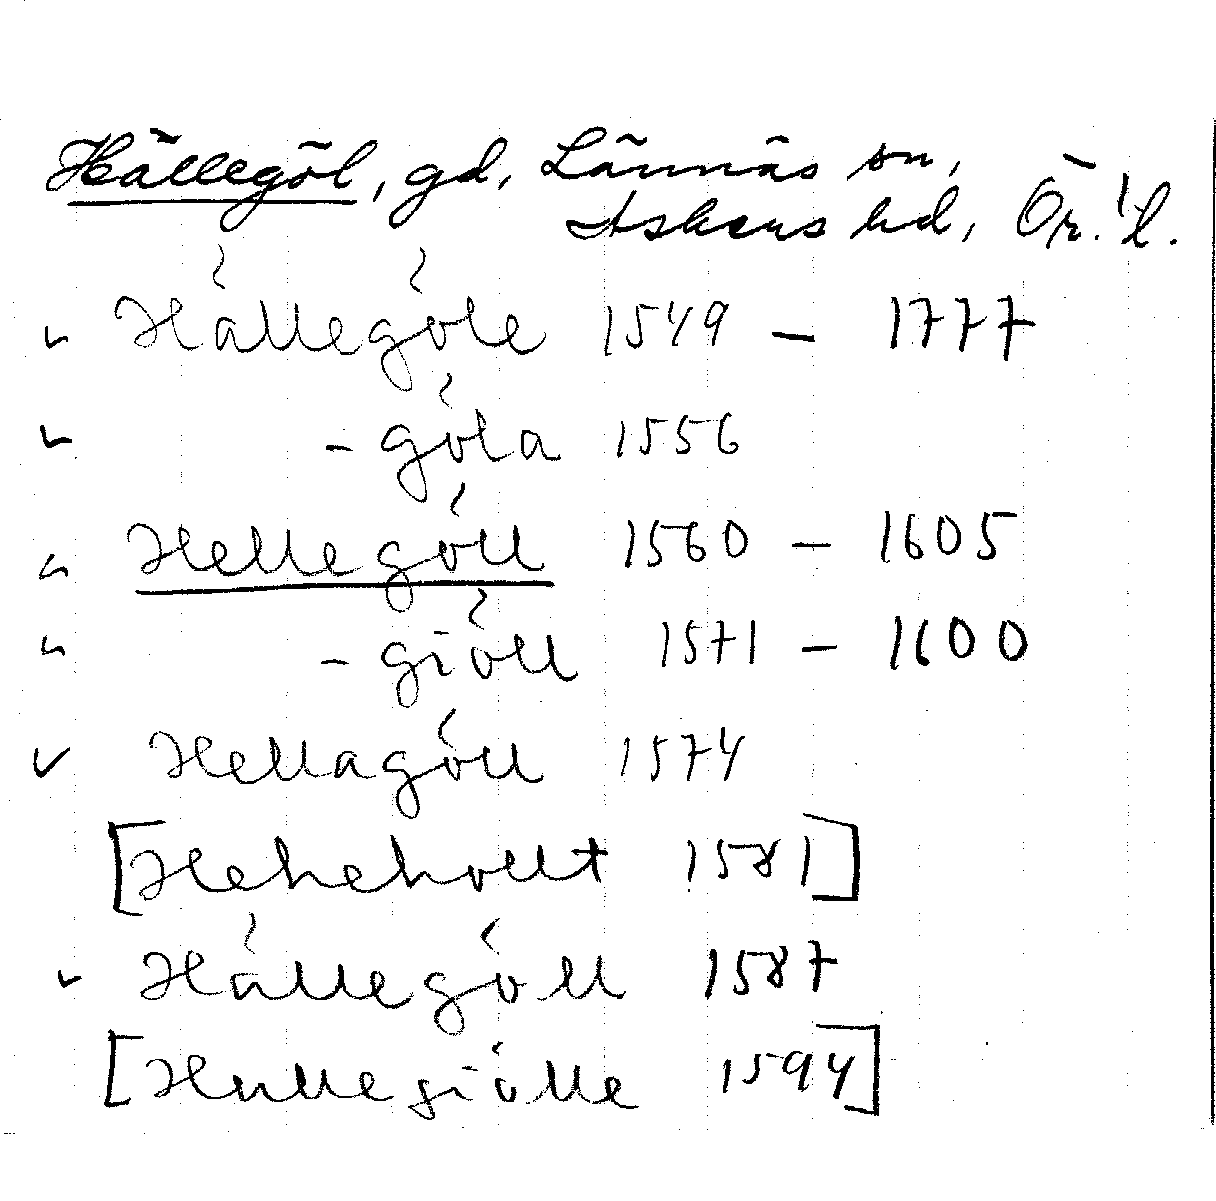 Hällegöl, gd, Lännäs sn,
Askers hd, Ör. l.
Hällegöle 1549 – 1777
- göla 1556
Hellegöll 1560 – 1605
- giöll 1571 – 1600
Hellagöll 1574
[Hehehollt 1581]
Hällegöll 1587
[Hullegiölle 1594]